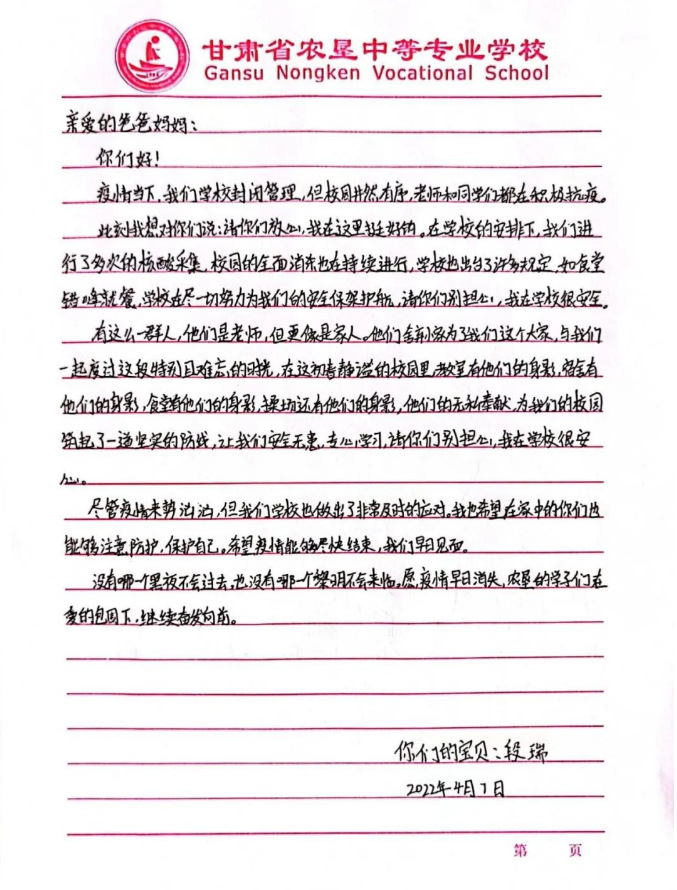 甘肃省农垦中等专业学校
Gansu Nongken Vocational School
亲爱的爸爸妈妈：
你们好！
疫情当下，我们学校封闭管理，但校园井然有序，老师和同学们都在积极抗疫。
此刻我想对你们说：请你们放心，我在这里挺好的。在学校的安排下，我们进
行了多次的核酸采集，校园的全面消杀也在持续进行，学校也出台了许多规定，如食堂
错峰就餐，学校在尽一切努力为我们的安全保驾护航，请你们别担心，我在学校很安全。
有这么一群人，他们是老师，但更像是家人。他们舍小家为了我们这个大家，与我们
一起度过这段特别且难忘的时光，在这初春静谧的校园里，教室有他们的身影，宿舍有
他们的身影，食堂有他们的身影，操场还有他们的身影，他们的无私奉献，为我们的校园
筑起了一道坚实的防线，让我们安全无患，专心学习，请你们别担心，我在学校很安
心。
尽管疫情来势汹汹，但我们学校也做出了非常及时的应对。我也希望在家中的你们也
能够注意防护，保护自己。希望疫情能够尽快结束，我们早日见面。
没有哪一个黑夜不会过去，也没有哪一个黎明不会来临。愿疫情早日消失，农垦的学子们在
爱的包围下，继续奋发向前。
你们的宝贝：段瑞
2022年4月1日
第 页